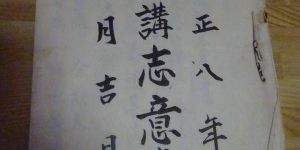 正八年
講志意
月吉日